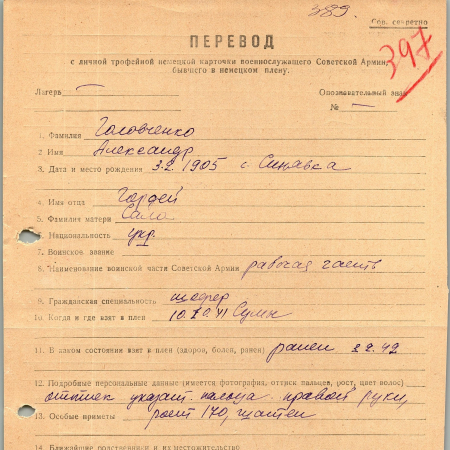 389.
Сов. секретно
ПЕРЕВОД
397
с личной трофейной немецкой карточки военнослужащего Советской Армии,
бывшего в немецком плену.
Лагерь —
Опознавательный знак
№ —
1. Фамилия Головченко
2. Имя Александр
3. Дата и место рождения 3.2.1905 с. Синявка
4. Имя отца Гордей
5. Фамилия матери Сало
6. Национальность укр.
7. Воинское звание —
8. Наименование воинской части Советской Армии рабочая часть
9. Гражданская специальность шофер
10. Когда и где взят в плен 10.10.41 Сумы
11. В каком состоянии взят в плен (здоров, болен, ранен) ранен 2.2.42
12. Подробные персональные данные (имеется фотография, оттиск пальцев, рост, цвет волос)
оттиск указат. пальца правой руки,
13. Особые приметы рост 170, шатен
14. Ближайшие родственники и их местожительство